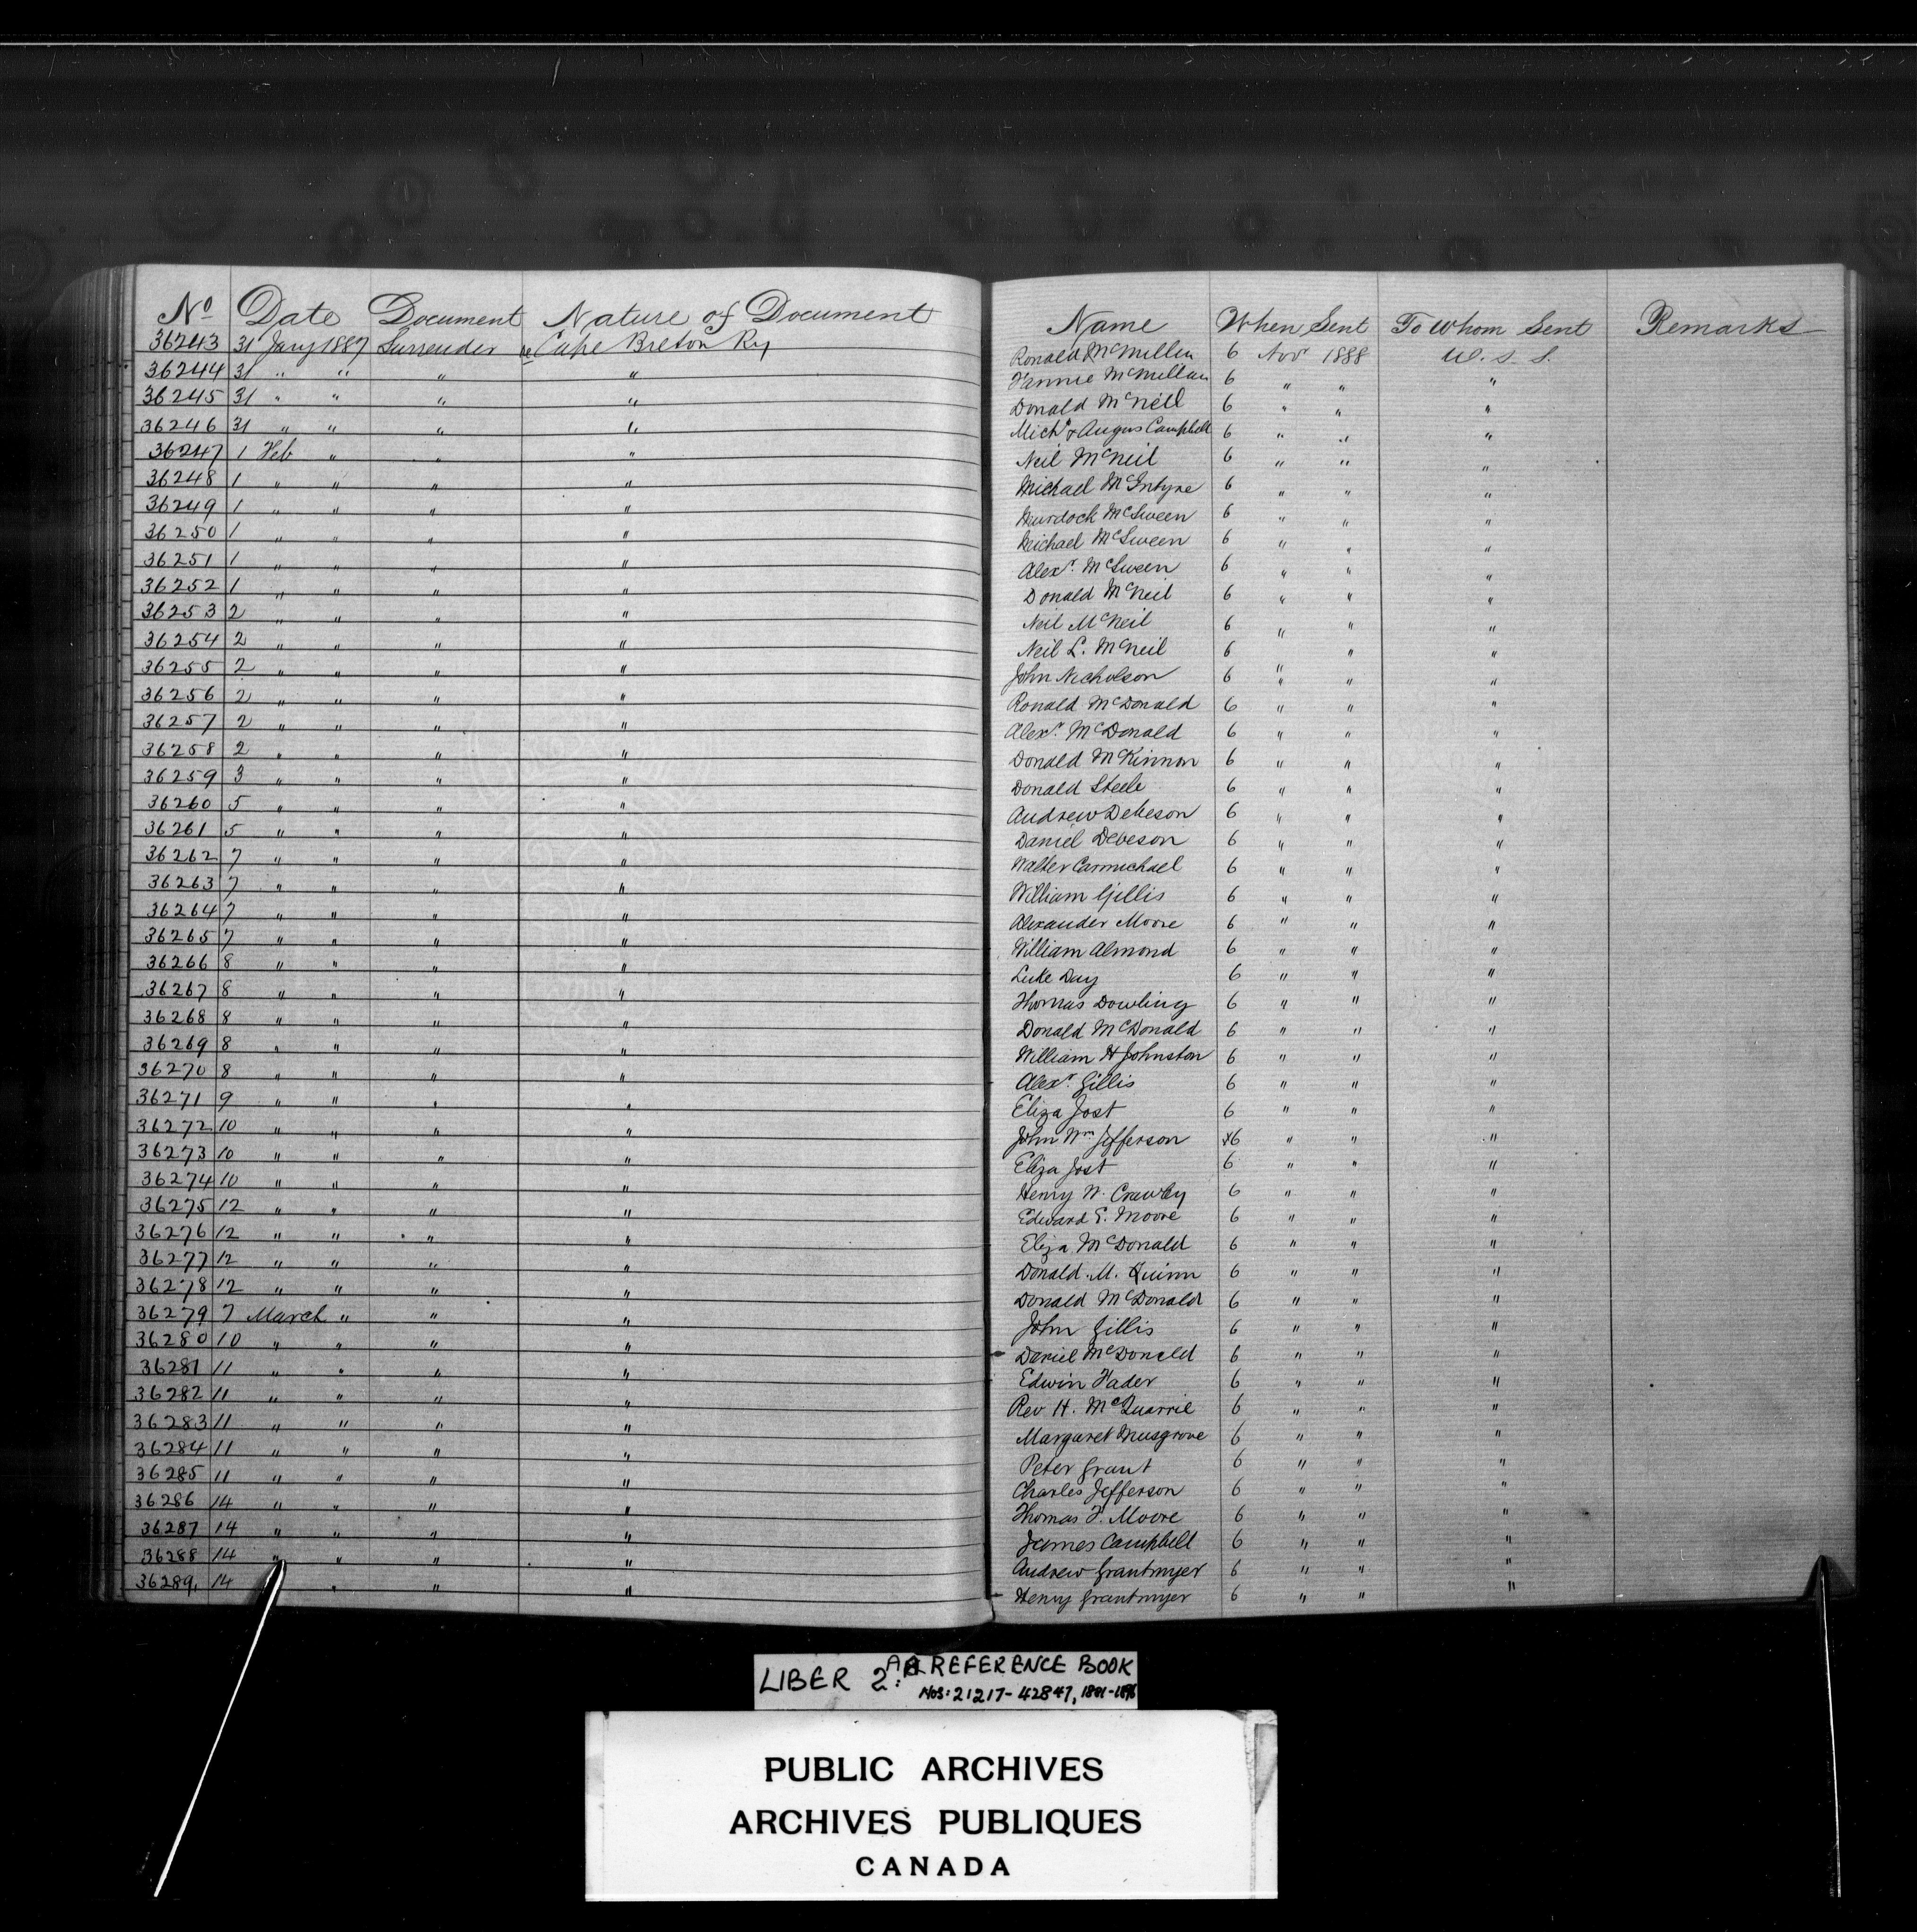 No Date Document Nature of Document Name When Sent To Whom Sent Remarks
36243 31 Jany 1887 Surrender re Cape Breton Ry Ronald McMillan 6 Novr 1888 W. S. S.
36244 31 " " " " Fannie McMillan 6 " " "
36245 31 " " " " Donald McNeil 6 " " "
36246 31 " " " " Michl & Angus Campbell 6 " " "
36247 1 Feb " " " Neil McNeil 6 " " "
36248 1 " " " " Michael McIntyre 6 " " "
36249 1 " " " " Murdoch McSween 6 " " "
36250 1 " " " " Michael McSween 6 " " "
36251 1 " " " " Alexr. McSween 6 " " "
36252 1 " " " " Donald McNeil 6 " " "
36253 2 " " " " Neil McNeil 6 " " "
36254 2 " " " " Neil L. McNeil 6 " "
36255 2 " " " " John Nicholson 6 " " "
36256 2 " " " " Ronald McDonald 6 " " "
36257 2 " " " " Alexr. McDonald 6 " " "
36258 2 " " " " Donald McKinnon 6 " " "
36259 3 " " " " Donald Steele 6 " " "
36260 5 " " " " Andrew 6 " " "
36261 5 " " " " Daniel 6 " " "
36262 7 " " " " Walter Carmichael 6 " " "
36263 7 " " " " William Gillis 6 " " "
36264 7 " " " " Alexander Moore 6 " " "
36265 7 " " " " William Almond 6 " " "
36266 8 " " " " Luke Day 6 " " "
36267 8 " " " " Thomas Dowling 6 " " "
36268 8 " " " " Donald McDonald 6 " " "
36269 8 " " " " William H Johnston 6 " " "
36270 8 " " " " Alexr. Gillis 6 " " "
36271 9 " " " " Eliza Jost 6 " " "
36272 10 " " " " John Wm Jefferson 6 " " "
36273 10 " " " " Eliza Jost 6 " " "
36274 10 " " " " Henry W. Crawley 6 " " "
36275 12 " " " " Edward E. Moore 6 " " "
36276 12 " " " " Eliza McDonald 6 " " "
36277 12 " " " " Donald M. Quinn 6 " " "
36278 12 " " " " Donald McDonald 6 " " "
36279 7 March " " " John Gillis 6 " " "
36280 10 " " " " Daniel McDonald 6 " " "
36281 11 " " " " Edwin Hader 6 " " "
36282 11 " " " " Rev H. McQuarrie 6 " " "
36283 11 " " " " Margaret Musgrove 6 " " "
36284 11 " " " " Peter Grant 6 " " "
36285 11 " " " " Charles Jefferson 6 " " "
36286 14 " " " " Thomas F. Moore 6 " " "
36287 14 " " " " James Campbell 6 " " "
36288 14 " " " " Andrew Grantmyer 6 " " "
36289 14 " " " Henry Grantmyer 6 " " "
LIBER 2: REFERENCE BOOK
NOS: 21217-42847,
PUBLIC ARCHIVES
ARCHIVES PUBLIQUES
CANADA